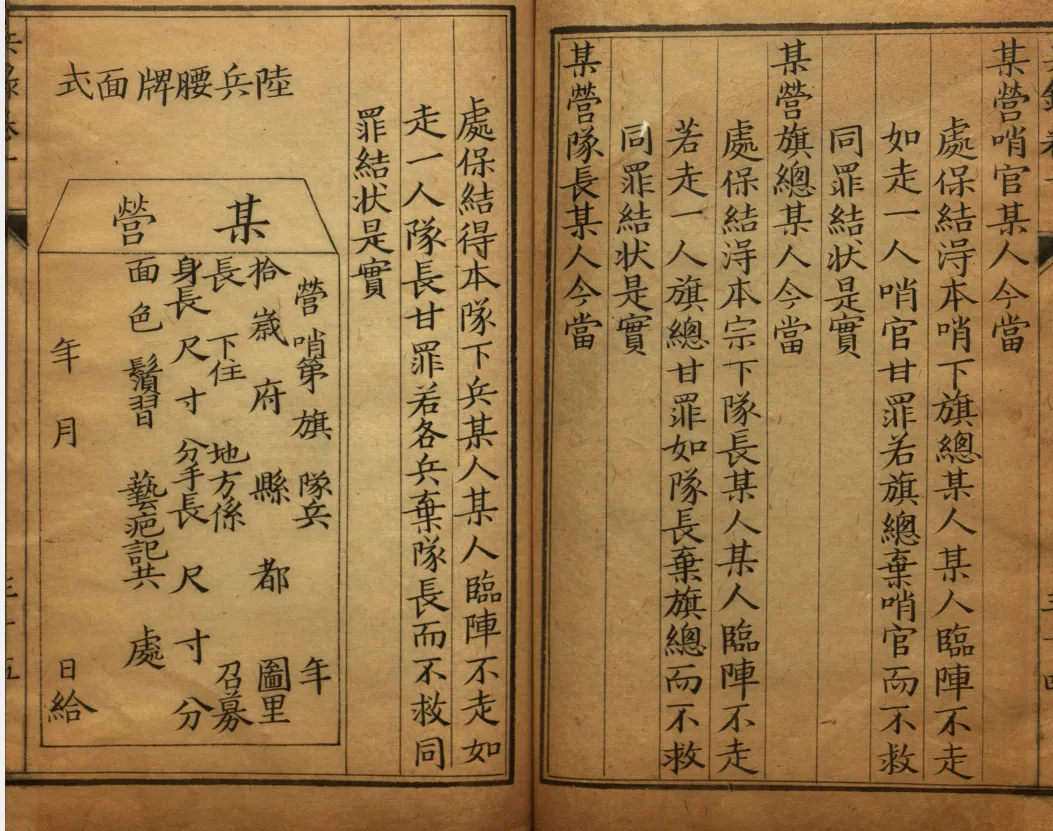 某營哨官某人今當
處保結淂本哨下旗總某人某人臨陣不走
如走一人哨官甘罪若旗總棄哨官而不救
同罪結状是實
某營旗總某人今當
處保結淂本宗下隊長某人某人臨陣不走
若走一人旗總甘罪如隊長棄旗總而不救
同罪結状是實
某營隊長某人今當
處保結得本隊下兵某人某人臨陣不走如
走一人隊長甘罪若各兵棄隊長而不救同
罪結状是實
陸兵腰牌面式
某營
營哨第旗隊兵年
拾嵗府縣都圖里
長下住地方係召募
身長尺寸分手長尺寸分
面色鬚習藝疤記共處
年月日給